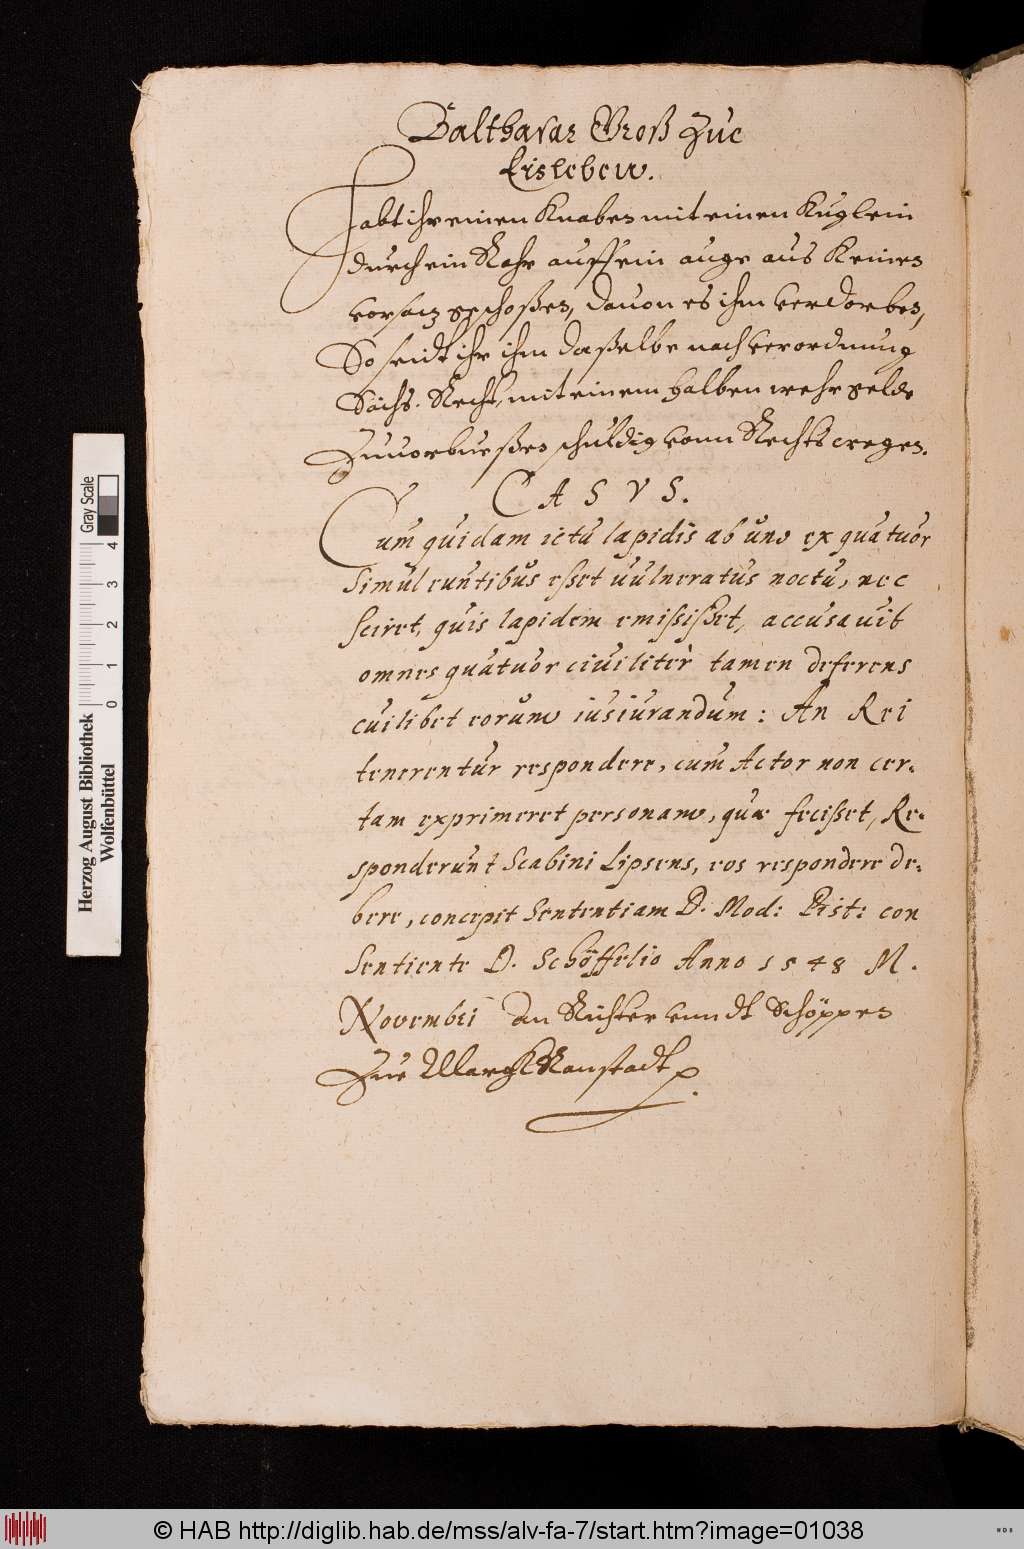 Balthasar Groß Zue
Eisleben.
Habt ihr einen Knaben mit einen Kuglein
durch ein Rohr auff sein auge aus Keinen
vorsatz geschoßen, dauon es ihm verdorben,
So seidt ihr ihm daßelbe nach verordnung
Sächs. Rechts, mit einem halben wehrgelde
Zuuorbueßen schuldig vonn Rechts wegen.
CASVS.
Cum quidam ictu lapidis ab uno ex quatuor
simul euntibus esset uulneratus noctu, nec
sciret, quis lapidem emisißet, accusauit
omnes quatuor ciuiliter tamen deferens
cuilibet eorum iusiurandum: An Rei
tenerentur respondere, cum Actor non cer-
tam exprimeret personam, quæ fecißet, Re-
sponderunt Scabini Lipsens, eos respondere de-
bere, concepit Sententiam D. Mod: Pist: con
sentiente D. Schöffelio Anno 1548 M.
Novembri An Richter vnndt Schöppen
Zue Margk Ranstadt
Herzog August Bibliothek
Wolfenbüttel
0 1 2 3 4
Gray Scale
© HAB http://diglib.hab.de/mss/alv-fa-7/start.htm?image=01038